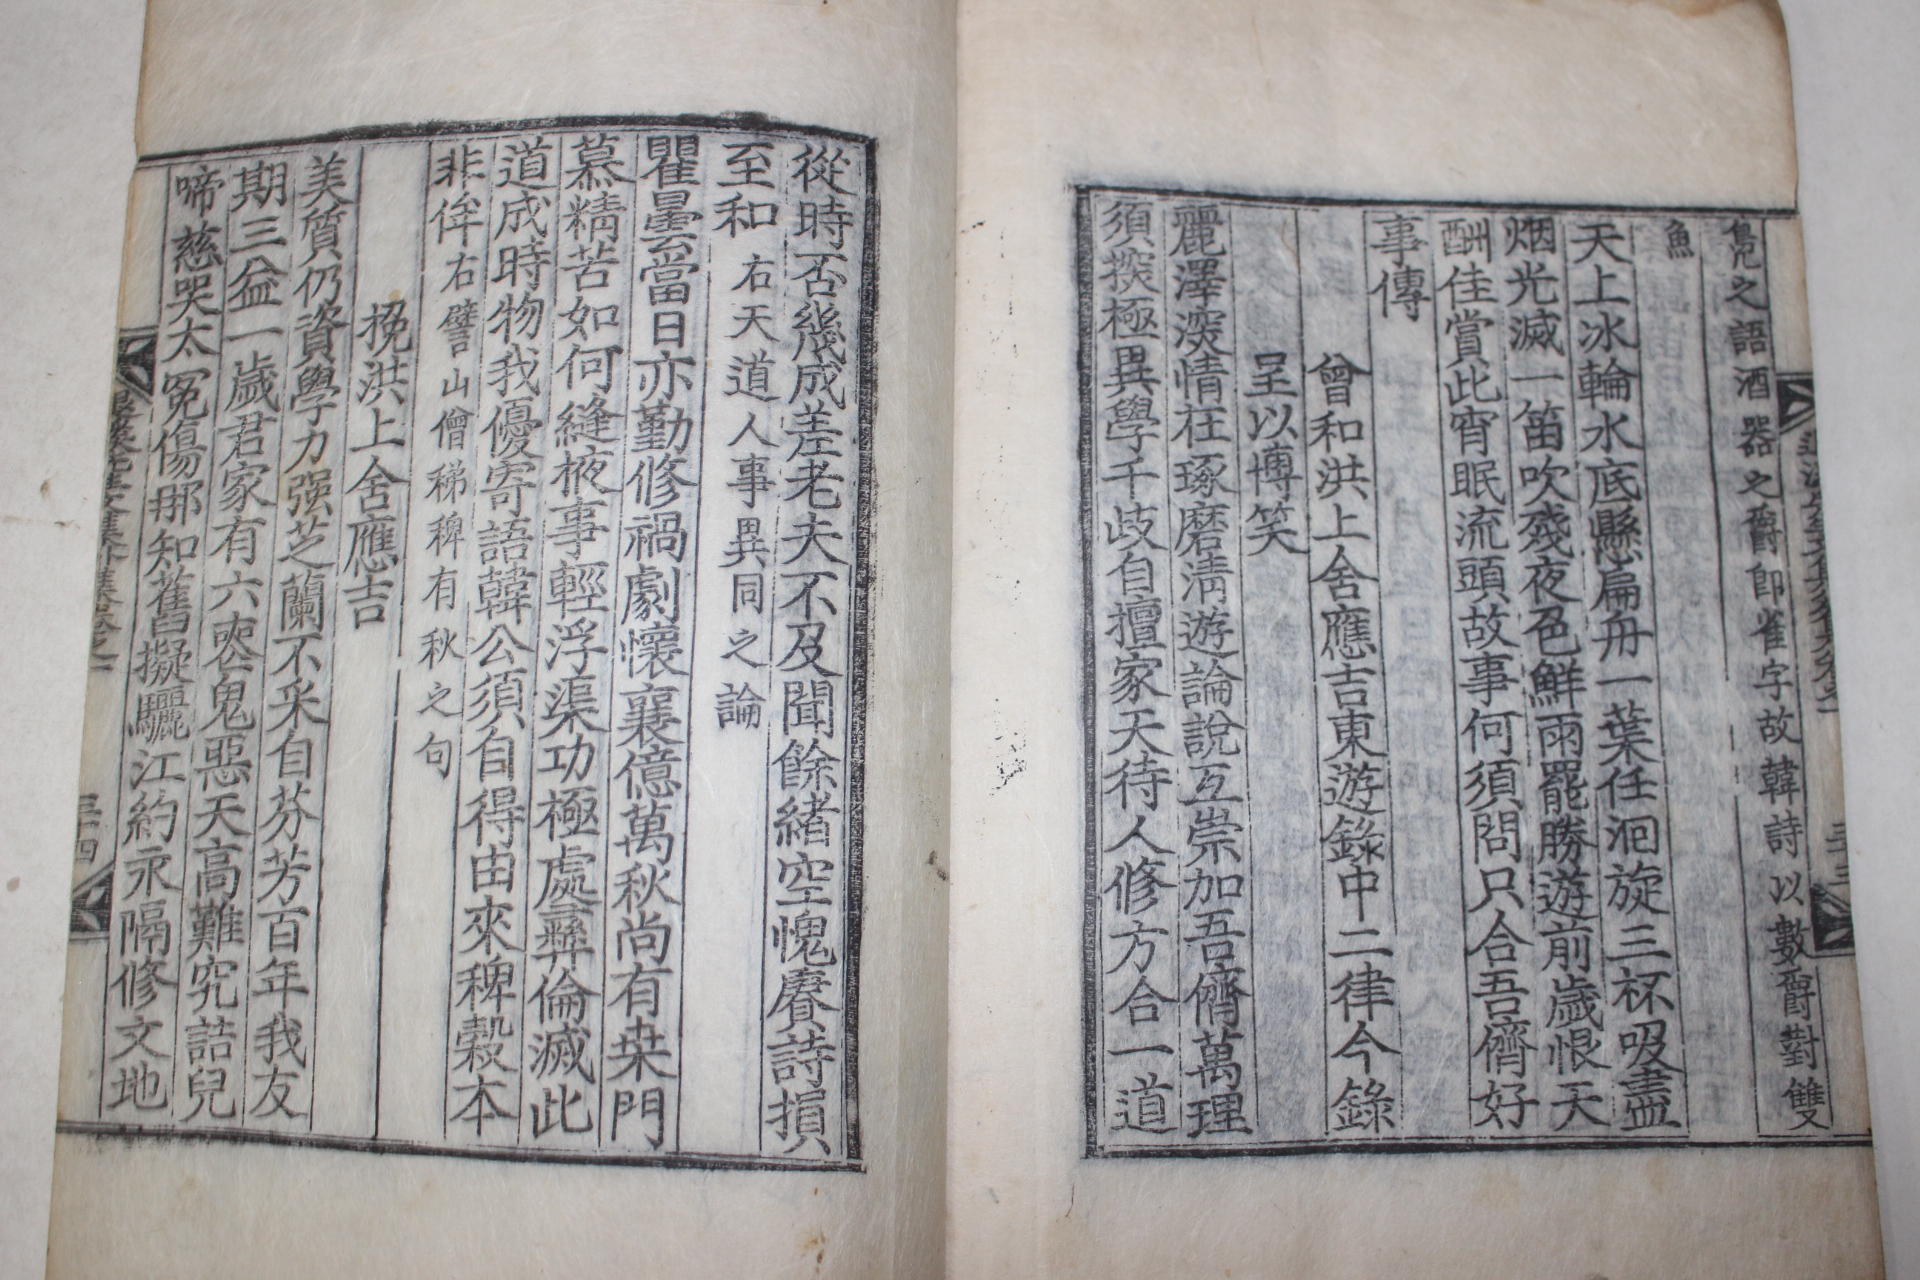 鳧之語酒器之爵卽雀字故韓詩以數爵對雙
魚
天上冰輪水底懸扁舟一葉任洄旋三杯吸盡
烟光滅一笛吹殘夜色鮮雨罷勝遊前歲恨天
酬佳賞此宵眠流頭故事何須問只合吾儕好
事傳
曾和洪上舍應吉東遊錄中二律今錄
呈以博笑
麗澤深情在琢磨淸遊論說互崇加吾儕萬理
須探極異學千歧自擅家天待人修方合一道
從時否幾成差老夫不及聞餘緖空愧賡詩損
至和 右天道人事異同之論
瞿曇當日亦勤修禍劇懷襄億萬秋尙有桒門
慕精苦如何縫掖事輕浮渠功極處彛倫滅此
道成時物我優寄語韓公須自得由來稗穀本
非侔 右譬山僧稊稗有秋之句
挽洪上舍應吉
美質仍資學力强芝蘭不采自芬芳百年我友
期三益一歲君家有六喪鬼惡天高難究詰兒
啼慈哭太冤傷那知舊擬驪江約永隔修文地